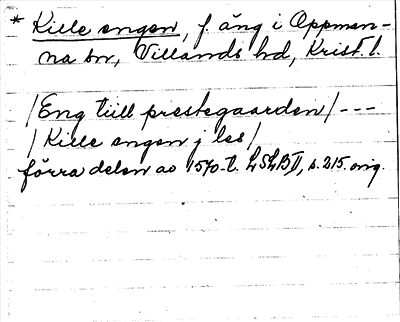 * Kille engen, f. äng i Oppman-
na sn, Villands hd, Krist. l.
/Eng tiill prestegaarden/ ---
/Kille engen j les/
förra delen av 1570-t. LSLB II, s. 215. orig.